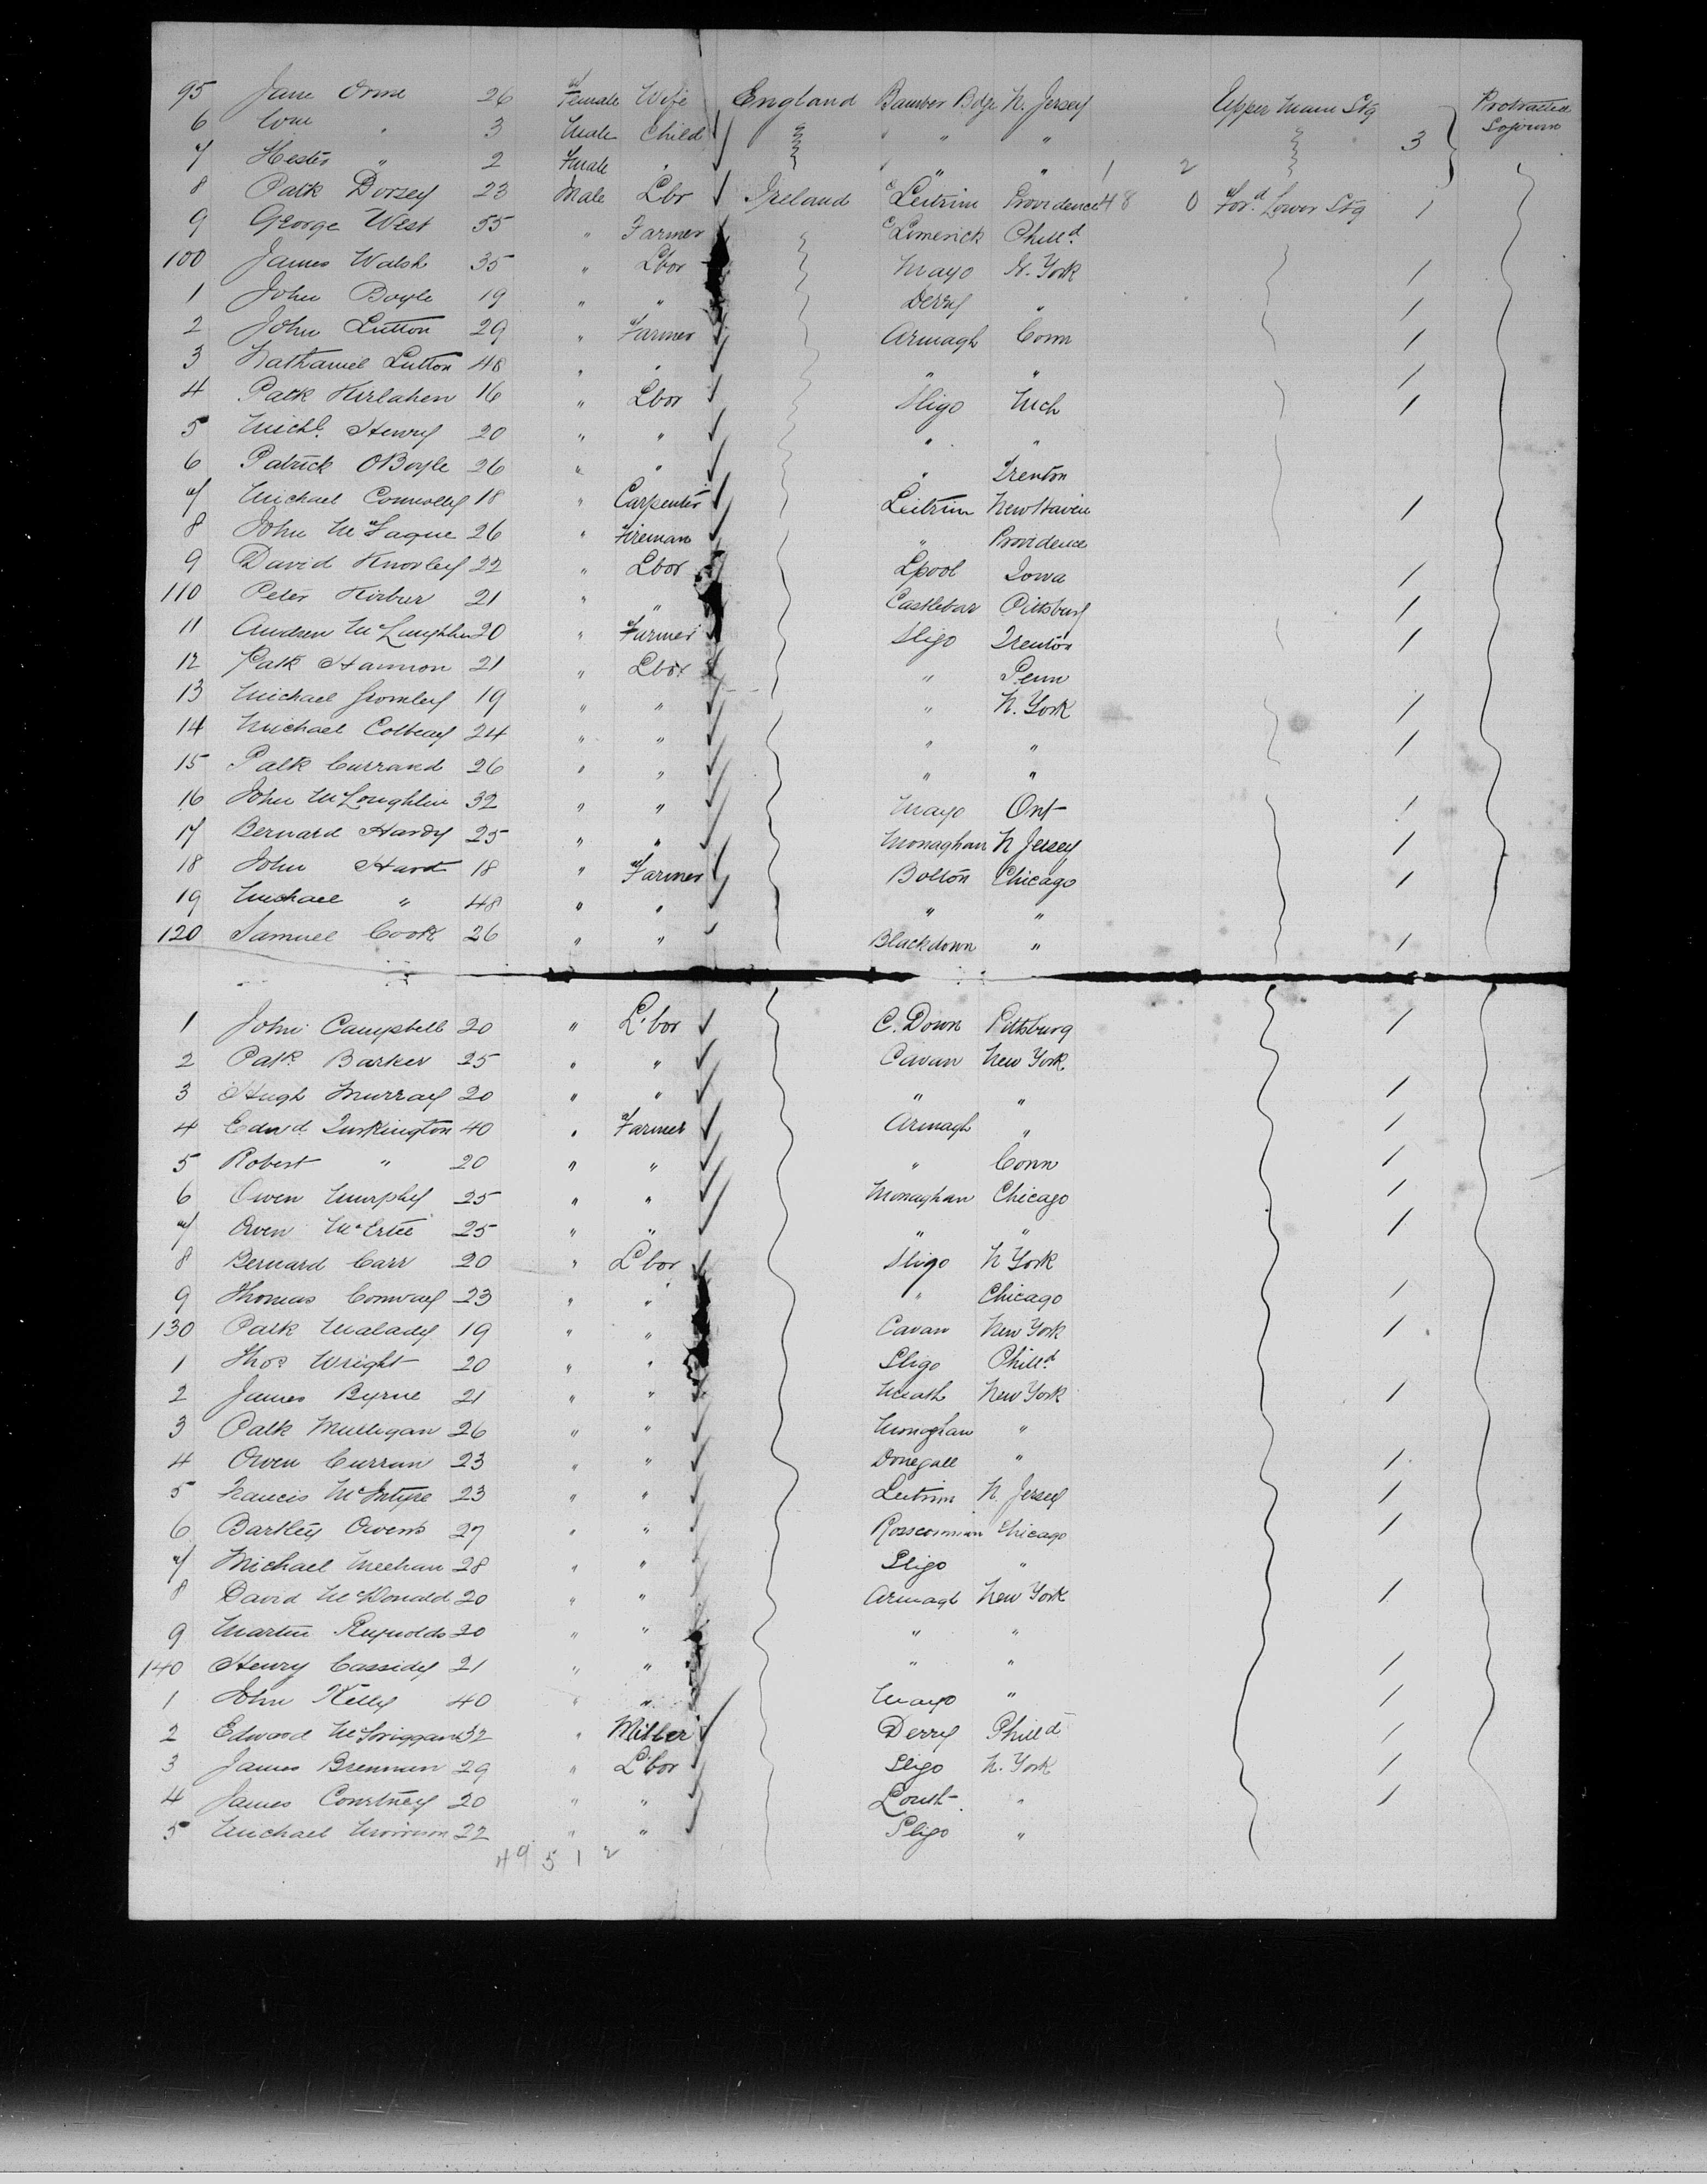 95 Jane Orme 26 Female Wife England Bamber Bdge N. Jersey Upper Main Stg Protracted
6 Wm " 3 Male Child " " 3 Sojourn
7 Hester " 2 Female " " " 1 2
8 Patk Dorsey 23 Male Lbr Ireland Co Leitrim Providence 48 0 For'd Lower Stg 1
9 George West 55 " Farmer Co Limerick Philld.
100 James Walsh 35 " Lbor Mayo N. York 1
1 John Boyle 19 " " Derry " 1
2 John Lutton 29 " Farmer Armagh Conn 1
3 Nathaniel Lutton 48 " " " " 1
4 Patk Kirlahen 16 " Lbor Sligo Mich 1
5 Michl. Henry 20 " " " "
6 Patrick OBoyle 26 " " " Trenton
7 Michael Connolly 18 " Carpenter Leitrim New Haven 1
8 John McTague 26 " Fireman " Providence
9 David Knovley 22 " Lbor Lpool Iowa 1
110 Peter Kirbur 21 " " Castlebar Pittsburg 1
11 Andrew McLaughlin 20 " Farmer Sligo Trenton 1
12 Patk Hannon 21 " Lbor " Penn
13 Michael Gromley 19 " " " N. York 1
14 Michael Colbeay 24 " " " " 1
15 Patk Currand 26 " " " "
16 John McLoughlin 32 " " Mayo Ont 1
17 Bernard Hardy 25 " " Monaghan N Jersey 1
18 John Hart 18 " Farmer Bolton Chicago 1
19 Michael " 48 " " " "
120 Samuel Cook 26 " " Blackdown " 1
1 John Campbell 20 " L'bor C. Down Pittsburg 1
2 Patk. Barker 25 " " Cavan New York
3 Hugh Murray 20 " " " " 1
4 Edwd Turkington 40 " Farmer Armagh " 1
5 Robert " 20 " " " Conn 1
6 Owen Murphy 25 " " Monaghan Chicago 1
7 Owen McErtee 25 " " " " 1
8 Bernard Carr 20 " L'bor Sligo N York
9 Thomas Conway 23 " " " Chicago 1
130 Patk Malady 19 " " Cavan New York 1
1 Thos Wright 20 " " Sligo Philld.
2 James Byrne 21 " " Meath New York 1
3 Patk Mulligan 26 " " Monaghan "
4 Owen Curran 23 " " Donegall " 1
5 Francis McIntyre 23 " " Leitrim N. Jersey 1
6 Bartley Owens 27 " " Roscommon Chicago 1
7 Michael Meehan 28 " " Sligo "
8 David McDonald 20 " " Armagh New York 1
9 Martin Reynolds 20 " " " "
140 Henry Cassidy 21 " " " " 1
1 John Kelly 40 " " Mayo " 1
2 Edward McGriggan 32 " Miller Derry Philld 1
3 James Brennan 29 " L'bor Sligo N. York 1
4 James Courtney 20 " " Louth " 1
5 Michael Morrison 22 " " Sligo "
49 5 1 2